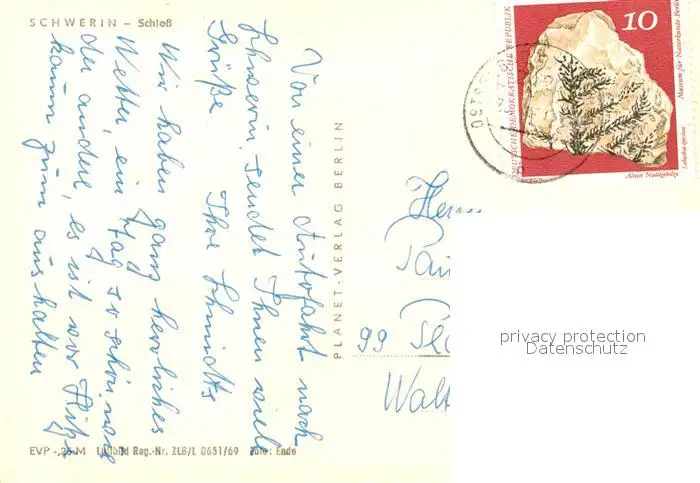 SCHWERIN – Schloß
Von einer Autofahrt nach
Schwerin, sendet Ihnen viele
Grüße Ihre Schmidts
Wir haben ganz herrliches
Wetter, ein Tag so schön wie
der andere, es ist vor Hitze
kaum zum aushalten
PLANET-VERLAG BERLIN
EVP -,25 M Reg.-Nr. ZLB/L 0651/69 Foto: Ende
DEUTSCHE DEMOKRATISCHE REPUBLIK
10
Museum für Naturkunde Berlin
Lebachia speciosa
Älteste Nadelgehölze
Herrn
99
privacy protection
Datenschutz